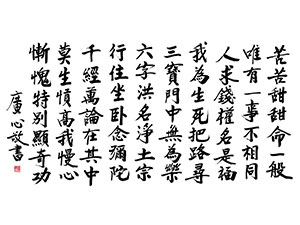 苦苦甜甜命一般
唯有一事不相同
人求錢權名是福
我為生死把路尋
三寶門中無為樂
六字洪名淨土宗
行住坐臥念彌陀
千經萬論在其中
莫生憤高我慢心
慚愧特別顯奇功
廣心敬書